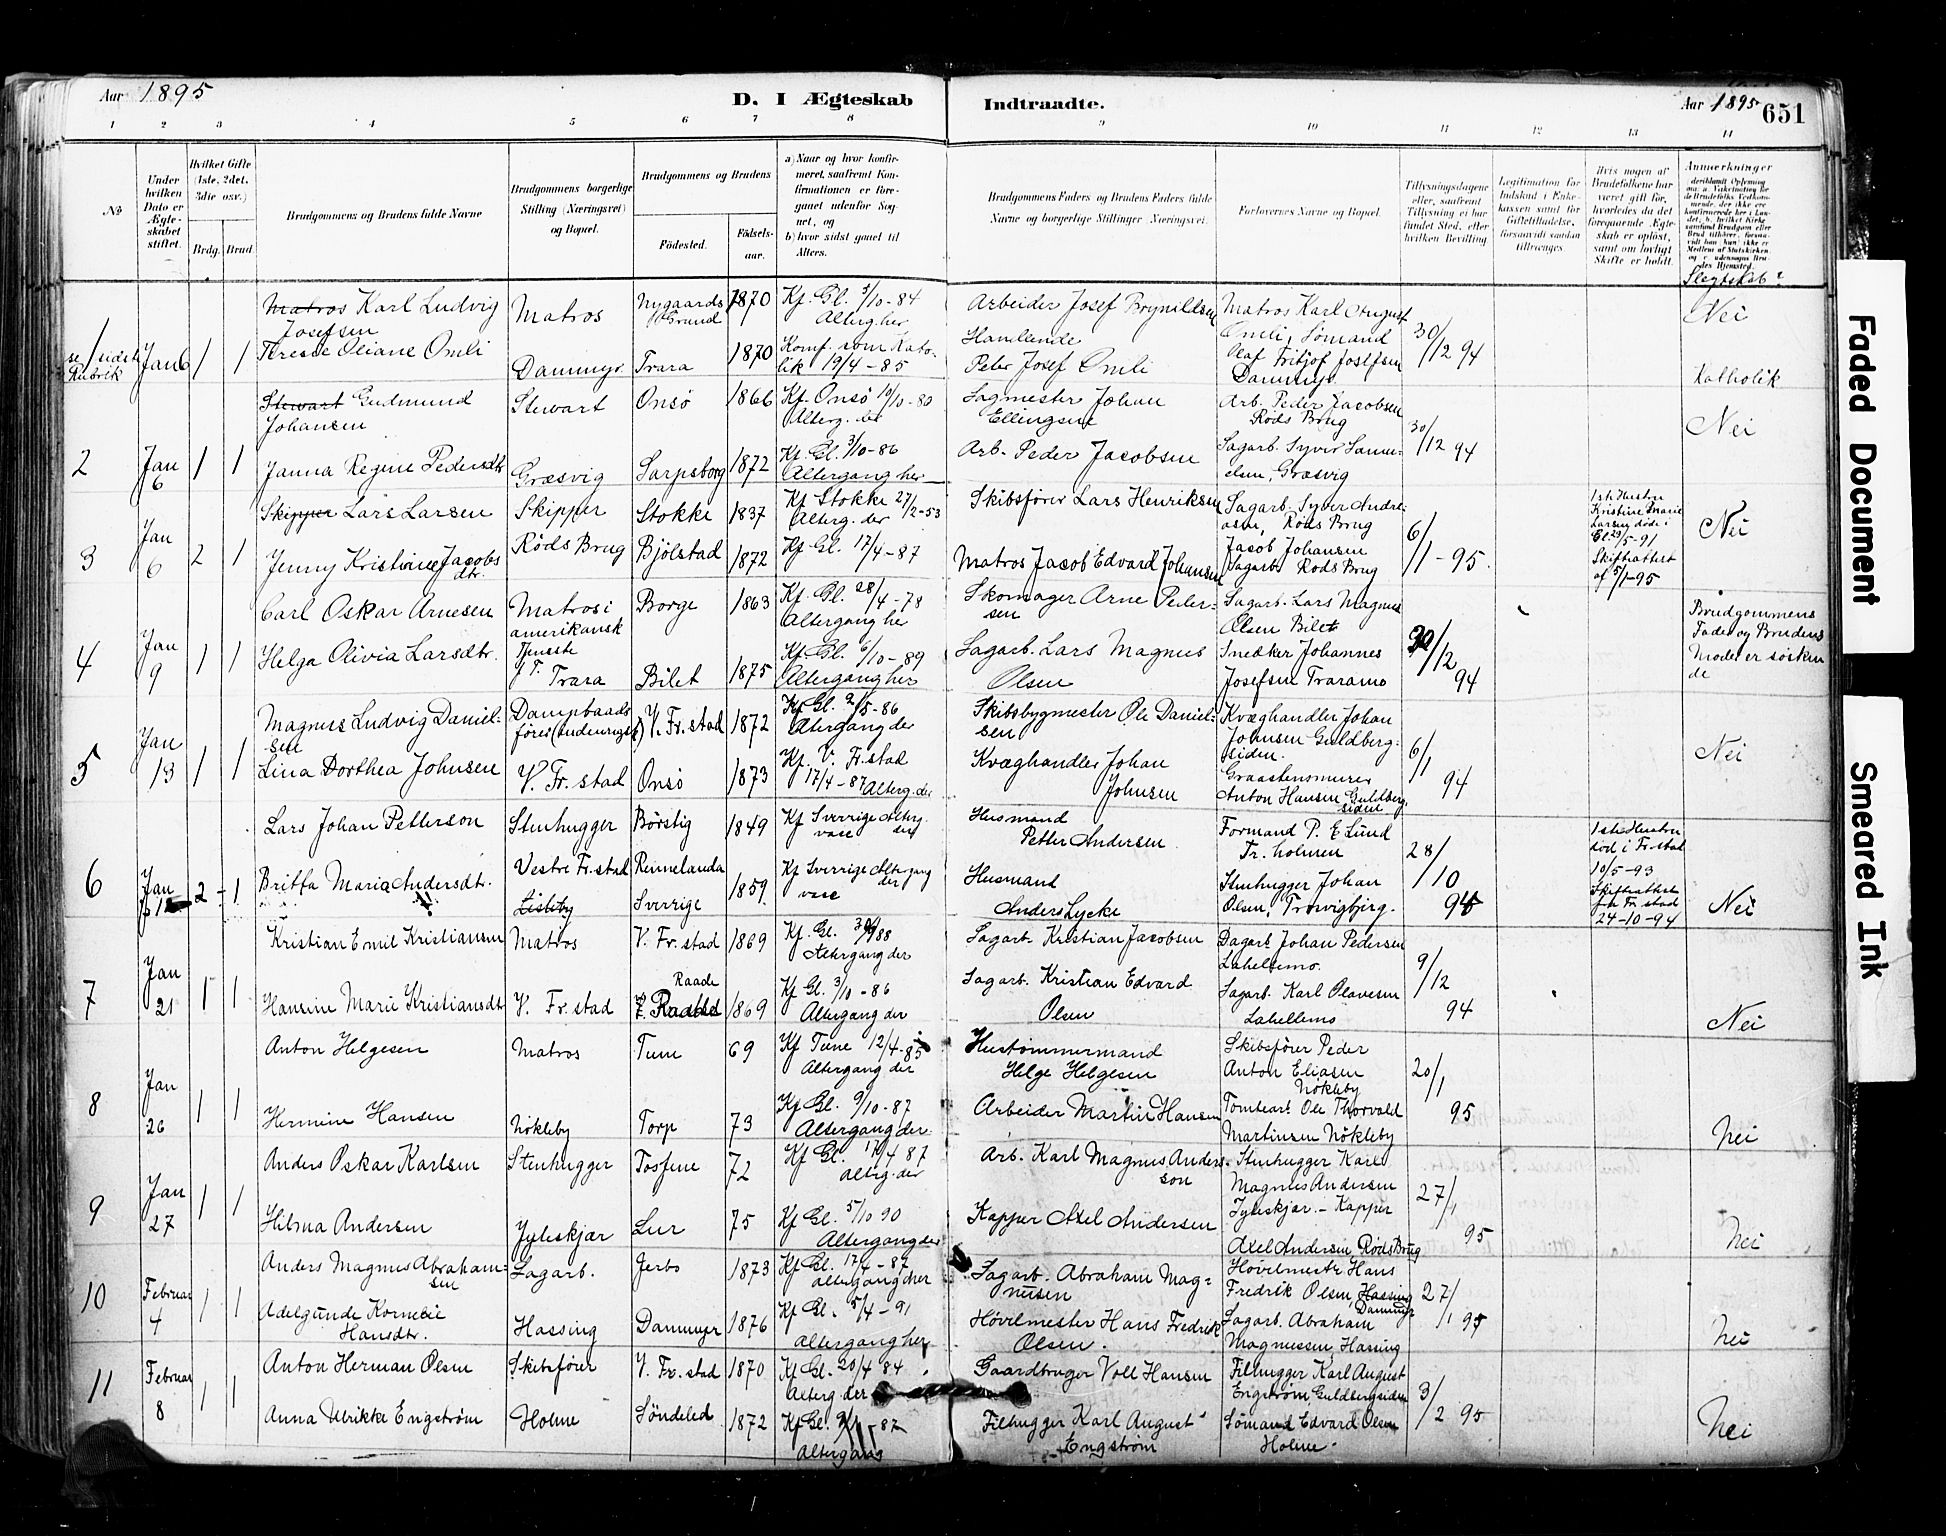 Aar 1895
D. I Ægteskab
Indtraadte.
Aar 1895 651
1 2 3 4 5 6 7 8 9 10 11 12 13 14
No
Under hvilken Dato er Ægteskabet stiftet.
Hvilket Gifte (1ste, 2det, 3die osv.)
Brdg. Brud.
Brudgommens og Brudens fulde Navne
Brudgommens borgerlige Stilling (Næringsvei) og Bopæl.
Brudgommens og Brudens
Fødested.
Fødsels-aar.
a) Naar og hvor konfirmeret, samt om Konfirmationen er foregaaet udenfor Sognet, og
b) hvor sidst gaaet til Alters.
Brudgommens Faders og Brudens Faders fulde Navne og borgerlige Stillinger (Næringsvei).
Forlovernes Navne og Bopæl.
Tillysningsdagene eller, saafremt Tillysning ei har fundet Sted, efter hvilken Bevilling
Legitimation for Indskud i Enkekassen samt for Giftetilladelse, forsaavidt saadan tiltrænges
Hvis nogen af Brudefolkene har været gift før, hvorledes da det foregaaende Ægteskab er opløst, samt om lovligt Skifte er holdt.
Anmerkninger
Slegtskab?
se sidste Rubrik
1 Jan 6 1 1
Matros Karl Ludvig Josefsen
Matros
Nygaards Grund
1870
Kf. Gl. 5/10-84
Alterg. her
Arbeider Josef Brynildsen
Hamlende
Matros Karl August Omli, Sømand
30/12 94
Nei
Terese Oliane Omli
Dammyr
Trara
1870
Konf. som Katolik 19/4-85
Peter Josef Omli
Olaf Fritjof Josefsen
Dammyr
Katholik
2 Jan 6 1 1
Stewart Gudmund Johansen
Stewart
Onsø
1866
Kf. Onsø 10/10-80
Alterg. der
Sagmester Johan Ellingsen
Arb. Peder Jacobsen
Røds Brug
30/12 94
Nei
Janna Regine Pedersdtr
Græsvig
Sarpsborg
1872
Kf. Gl. 3/10-86
Altergang her
Arb. Peder Jacobsen
Sagarb. Syver Samuelsen, Græsvig
3 Jan 6 2 1
Skipper Lars Larsen
Skipper
Stokke
1837
Kf Stokke 27/2-53
Alterg. der
Skibsfører Lars Henriksen
Sagarb. Syver Andreasen, Røds Brug
6/1-95.
1ste Hustru Kristine Marie Larsen døde i Gl. 29/5-91
Skifteattest af 5/1-95
Nei
Jenny Kristine Jacobsdtr.
Røds Brug
Bjølstad
1872
Kf. Gl. 17/4-87
Matros Jacob Edvard Johansen
Jacob Johansen
Sagarb. Røds Brug
4 Jan 9 1 1
Carl Oskar Arnesen
Matros i amerikansk Tjeneste
Borge
1863
Kf. Gl. 28/4-78
Altergang her
Skomager Arne Pedersen
Sagarb. Lars Magnus Olsen Bilet
30/12 94
Brudgommens Fader og Brudens Moder er søskende
Helga Olivia Larsdtr.
f. T. Trara
Bilet
1875
Kf. Gl. 6/10-89
Altergang her
Sagarb. Lars Magnus Olsen
Snedker Johannes Josefsen Traramo
5 Jan 13 1 1
Magnus Ludvig Danielsen
Dampbaadsfører (indenrigsk)
V. Fr. stad
1872
Kf Gl. 2/5-86
Altergang der
Skibsbygmester Ole Danielsen
Kvæghandler Johan Johnsen Guldbergsiden.
6/1 94
Nei
Lina Dorthea Johnsen
V. Fr. stad
Onsø
1873
Kf. V. Fr. stad 17/4-87 Alterg. der
Kvæghandler Johan Johnsen
Graastensmurer Anton Hansen Guldbergsiden
6 Jan 2 - 1
Lars Johan Petterson
Stenhugger
Børstig
1849
Kf Sverrige
Husmand Petter Andersen.
Formand P. E Lund
Tr. holmen
28/10 94
1ste Hustru død i Fr. stad 10/5-93
Skifteattest fra Fr. stad 24-10-94
Nei
Britta Maria Andersdtr.
Vestre Fr. stad
Lisleby
Rennelanda Sverrige
1859
Kf Sverrige Altergang der
Husmand Anders Lycke
Stenhugger Johan Olsen, Trosvigbjerg.
7 Jan 21 1 1
Kristian Emil Kristiansen
Matros
V. Fr. stad
1869
Kf. Gl.
Altergang der
Sagarb. Kristian Jacobsen
Dagarb Johan Pedersen Lahellemo.
9/12 94
Hansine Marie Kristiansdt
V. Fr. stad
Raade
1869
Kf Gl. 3/10-86
Altergang der
Sagarb. Kristian Edvard Olsen
Sagarb. Karl Olavesen Lahellemo
Nei
8 Jan 26 1 1
Anton Helgesen
Matros
Tune
69
Kf Tune 12/4-85
Altergang der
Hustømmermand Helge Helgesen
Skibsfører Peder Anton Eliasen Nökleby
20/1 95
Hermine Hansen
Nökleby
Torp
73
Kf Gl. 9/10-87
Altergang der.
Arbeider Martin Hansen
Tomtearb. Ole Thorvald Martinsen Nökleby
Nei
9 Jan 27 1 1
Anders Oskar Karlsen
Stenhugger
Tosfene
72
Kf Gl. 17/4 87
alterg. der
Arb. Karl Magnus Andersson
Stenhugger Karl Magnus Andersen Jyleskjær. - Kapper
27/1 95
Hilma Andersen
Jyleskjær
Lur
75
Kf Gl. 5/10 90
Altergang der
Kapper Axel Andersen
Axel Andersen, Røds Brug
Nei
10 Februar 4 1 1
Anders Magnus Abrahamsen
Sagarb.
Jerbo
1873
Kf Gl. 17/4-87
altergang her
Sagarb. Abraham Magnusen
Høvlmestr Hans Fredrik Olsen, Hassing Dammyr
27/1 95
Adelgunde Kornelie Hansdtr.
Hassing
Dammyr
1876
Kf Gl. 5/4-91
altergang her
Høvlmester Hans Fredrik Olsen.
Sagarb. Abraham Magnussen, Hassing
Nei
11 Februar 8 1 1
Anton Herman Olsen
Skibsfører
V. Fr. stad
1870
Kf Gl. 20/4 84
alterg. der
Gaardbruger Voll Hansen
Filhugger Karl August Engstrøm, Guldbergsiden
3/2 95
Anna Ulrikke Engstrøm
Holme
Söndeled
1872
Kf Gl. 87
Altergang
Filhugger Karl August Engstrøm
Sømand Edvard Olsen Holme.
Nei
Faded Document
Smeared Ink